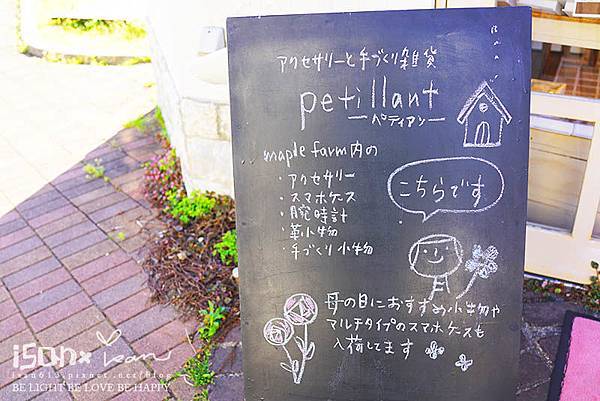 アクセサリーと手づくり雑貨
petillant
ーペティアンー
maple farm内の
・アクセサリー
・スマホケース
・腕時計
・革小物
・手づくり小物
こちらです
母の日におすすめ小物や
マルチタイプのスマホケースも
入荷してます
ison×
BE LIGHT BE LOVE BE HAPPY